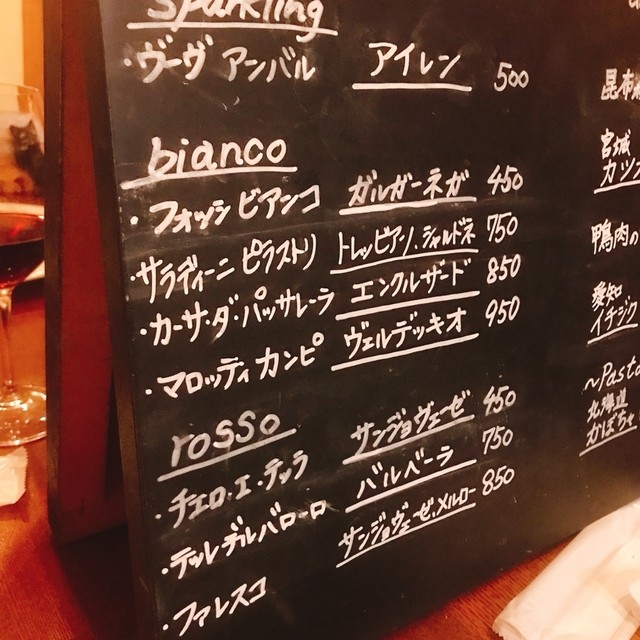 Sparkling
・ヴーヴ アンバル アイレン 500
bianco
・フォッシ ビアンコ ガルガーネガ 450
・サラディーニ ピラストリ トレッビアーノ、シャルドネ 750
・カーサ・ダ・パッサレーラ エンクルザード 850
・マロッティ カンピ ヴェルデッキオ 950
rosso
・チェロ・エ・テッラ サンジョヴェーゼ 450
・テッレデルバローロ バルベーラ 750
・ファレスコ サンジョヴェーゼ、メルロー 850
昆布
宮城
カツオ
鴨肉の
愛知
イチジク
~Pasta
北海道
かぼちゃ